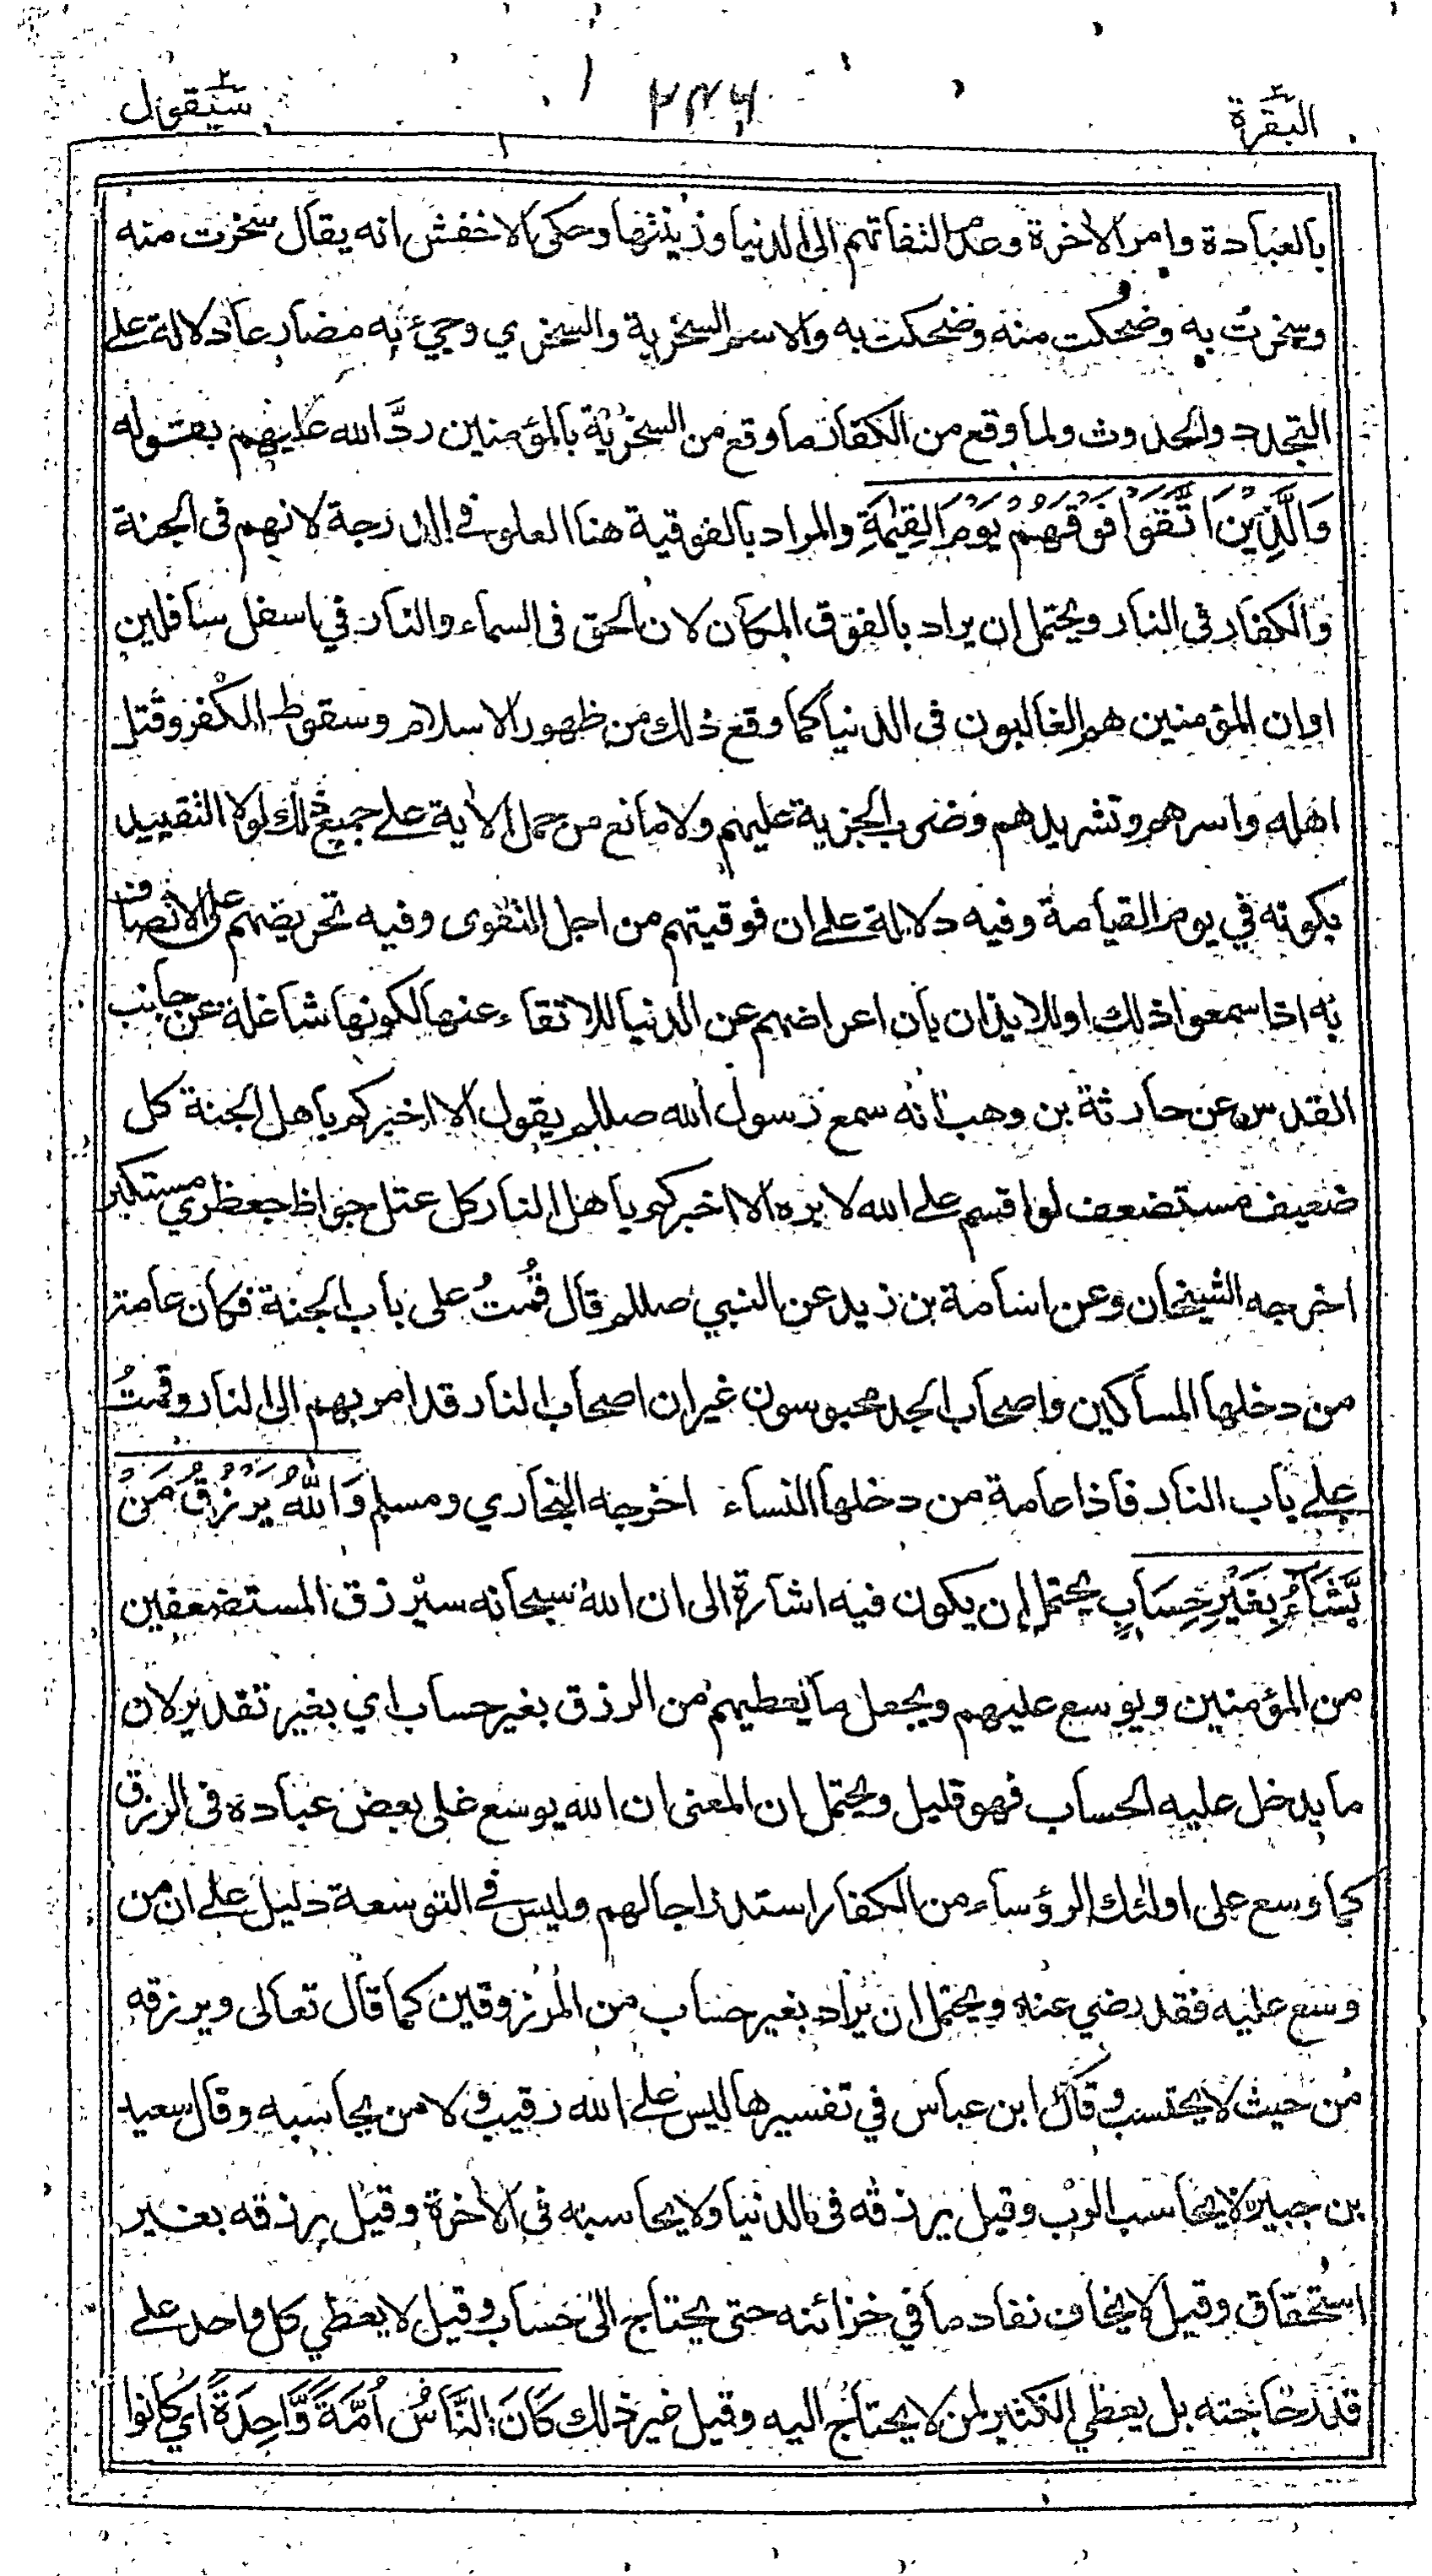 البقرة ٢ ٢٧٦ سيقول ٢
بالعبادة وامر الاخرة وعدم التفاتهم الى الدنيا وزينتها وحكى الاخفش انه يقال سخرت منه
وسخرت به وضحكت منه وضحكت به والاسم السخرية والسخري وجيئ به مضارعا دلالة على
التجدد والحدوث ولما وقع من الكفار ما وقع من السخرية بالمؤمنين ردَّ الله عليهم بقوله
وَالَّذِيْنَ اتَّقَوْا فَوْقَهُمْ يَوْمَ الْقِيٰمَةِ والمراد بالفوقية هنا العلو في الدرجة لانهم فى الجنة
والكفار في النار ويحتمل ان يراد بالفوق المكان لان الحق فى السماء والنار في اسفل سافلين
او ان المؤمنين هم الغالبون فى الدنيا كما وقع ذلك من ظهور الاسلام وسقوط الكفر وقتل
اهله واسرهم وتشريدهم وضرب الجزية عليهم ولا مانع من حمل الاية على جميع ذلك لولا التقييد
بكونه في يوم القيامة وفيه دلالة على ان فوقيتهم من اجل التقوى وفيه تحريضهم على الاتصاف
به اذا سمعوا ذلك او للايذان بان اعراضهم عن الدنيا للاتقاء عنها لكونها شاغلة عن جانب
القدس عن حارثة بن وهب انه سمع رسول الله صللم يقول الا اخبركم باهل الجنة كل
ضعيف مستضعف لو اقسم على الله لابره الا اخبركم باهل النار كل عتل جواظ جعظري مستكبر
اخرجه الشيخان وعن اسامة بن زيد عن النبي صللم قال قُمتُ على باب الجنة فكان عامة
من دخلها المساكين واصحاب الجد محبوسون غير ان اصحاب النار قد امر بهم الى النار وقمتُ
على باب النار فاذا عامة من دخلها النساء اخرجه البخاري ومسلم وَاللهُ يَرْزُقُ مَنْ
يَّشَآءُ بِغَيْرِ حِسَابٍ يحتمل ان يكون فيه اشارة الى ان الله سبحانه سيرزق المستضعفين
من المؤمنين ويوسع عليهم ويجعل ما يعطيهم من الرزق بغير حساب اي بغير تقدير لان
ما يدخل عليه الحساب فهو قليل ويحتمل ان المعنى ان الله يوسع على بعض عباده فى الرزق
كما وسع على اولئك الرؤساء من الكفار استدراجا لهم وليس في التوسعة دليل على ان من
وسع عليه فقد رضي عنه ويحتمل ان يراد بغير حساب من المرزوقين كما قال تعالى ويرزقه
من حيث لا يحتسب وقال ابن عباس في تفسيرها ليس على الله رقيب ولا من يحاسبه وقال سعيد
بن جبير لا يحاسب الرب وقيل يرزقه فى الدنيا ولا يحاسبه فى الاخرة وقيل يرزقه بغير
استحقاق وقيل لا يخاف نفاد ما في خزائنه حتى يحتاج الى حساب وقيل لا يعطي كل واحد على
قدر حاجته بل يعطي الكثير لمن لا يحتاج اليه وقيل غير ذلك كَانَ النَّاسُ اُمَّةً وَّاحِدَةً اي كانوا